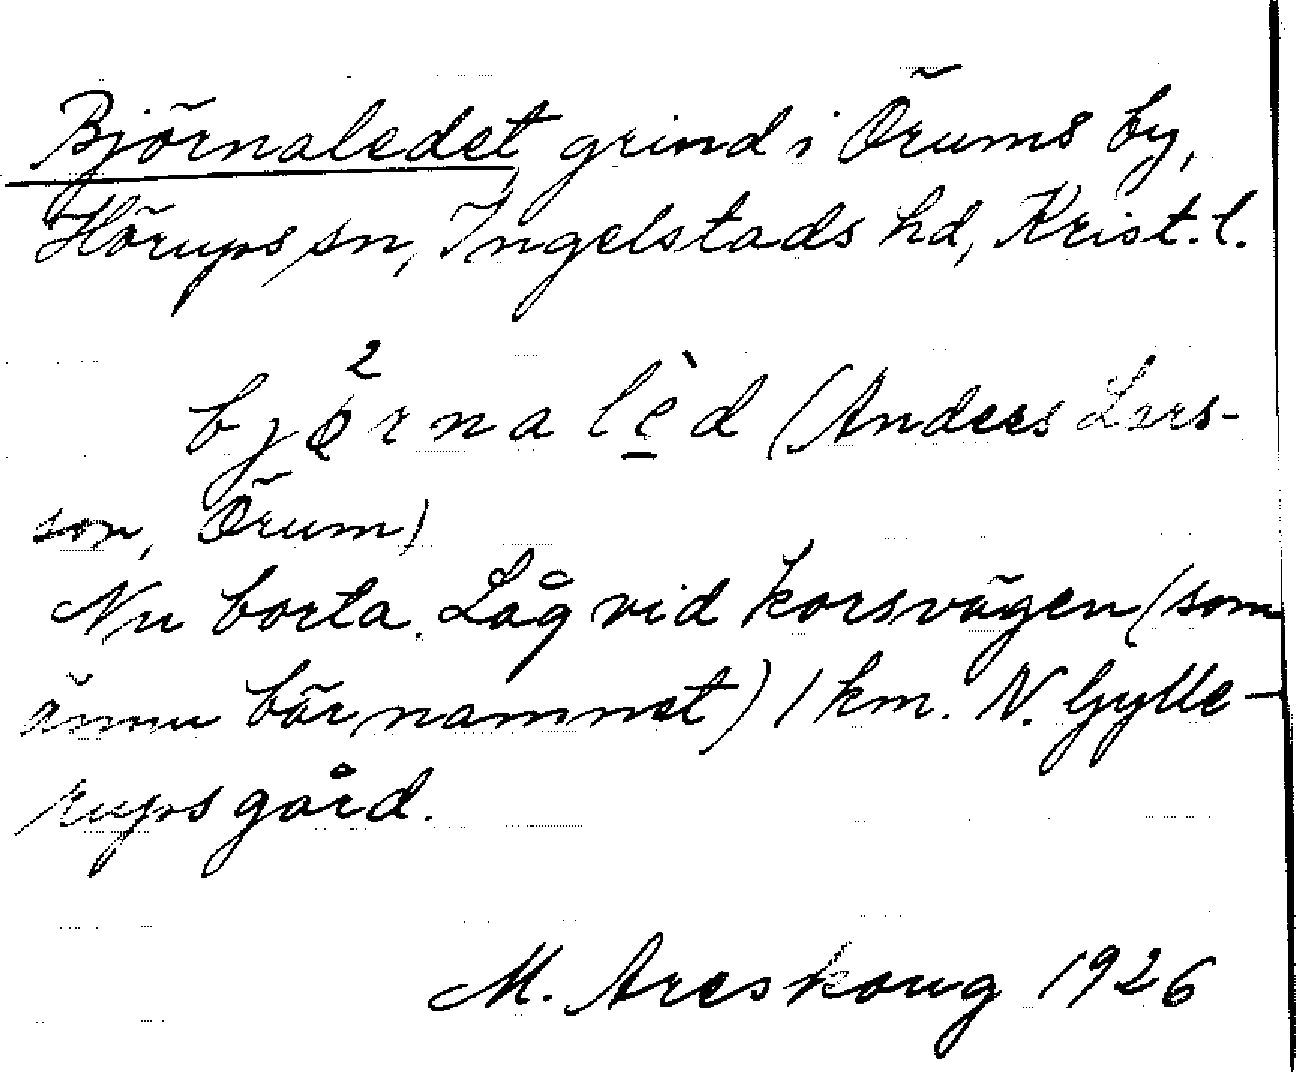 Björnaledet grind i Örums by,
Hörups sn, Ingelstads hd, Krist. l.
2
bjørnalèd (Anders Lars-
son, Örum)
Nu borta. Låg vid korsvägen (som
ännu bär namnet) 1 km. N. Gylle-
rups gård.
M. Areskoug 1926